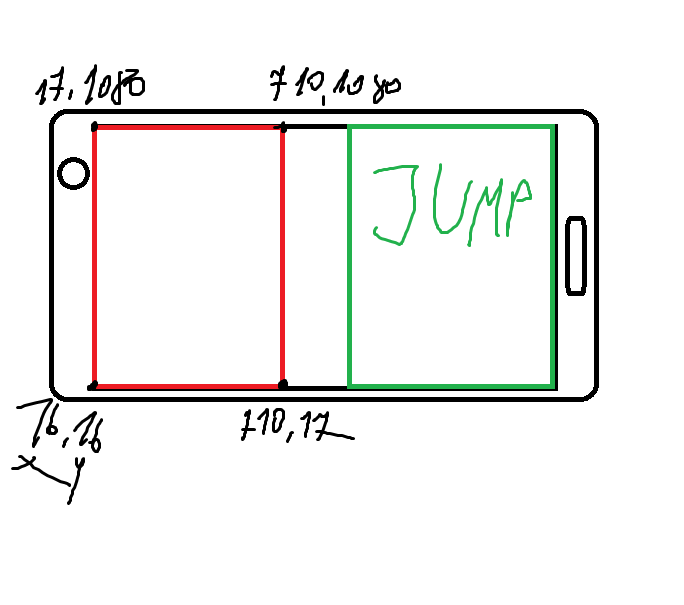 17,1080
710,1080
JUMP
16,16
710,17
x y